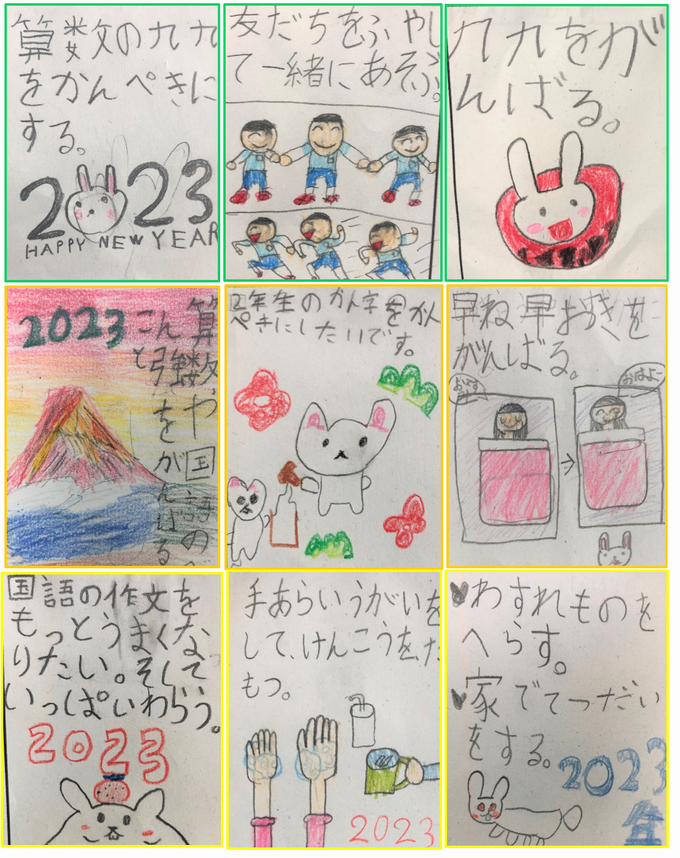 算数の九九
をかんぺきに
する。
2023
HAPPY NEW YEAR
友だちをふやし
て一緒にあそぶ。
九九をが
んばる。
2023
算数や国語のべ
ん強をがんばる
こんと
2年生のかん字をかん
ぺきにしたいです。
早ね早おきを
がんばる。
おはよー
国語の作文を
もっとうまくな
りたい。そして
いっぱいわらう。
2023
手あらいうがいを
して、けんこうを、た
もつ。
2023
わすれものを
へらす。
家でてつだい
をする。
2023
年